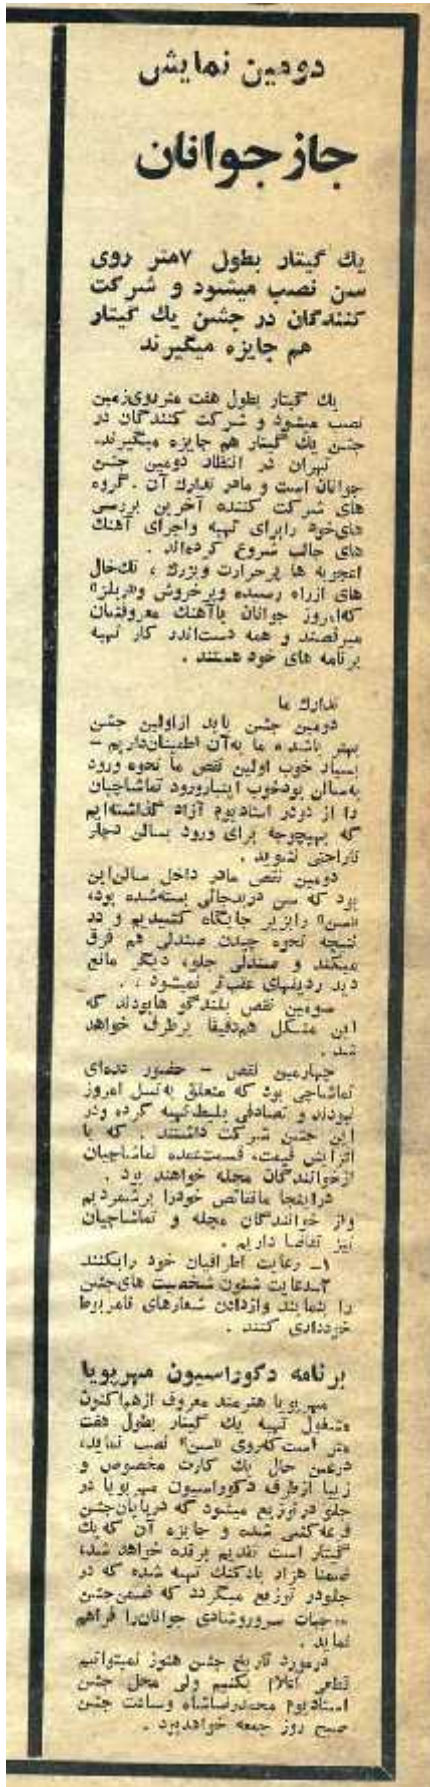 دومین نمایش
جاز جوانان
یك گیتار بطول ۷متر روی
سن نصب میشود و شرکت
کنندگان در جشن یك گیتار
هم جایزه میگیرند
یك گیتار بطول هفت متر روی زمین
نصب میشود و شرکت کنندگان در
جشن یك گیتار هم جایزه میگیرند.
تهران در انتظار دومین جشن
جوانان است و ما در تدارك آن . گروه
های شرکت کننده آخرین بررسی
های خود را برای تهیه و اجرای آهنك
های جالب شروع کرده‌اند .
اعجوبه ها پرحرارت و بزرك ، تكخال
های از راه رسیده و پرخروش و «ربلز»
که امروز جوانان با آهنك معروفشان
میرقصند و همه دست‌اندر کار تهیه
برنامه های خود هستند .
تدارك ما
دومین جشن باید از اولین جشن
بهتر باشد، ما به آن اطمینان داریم –
بسیار خوب اولین نقص ما نحوه ورود
به سالن بود خوب اینبار ورود تماشاچیان
را از دو در استادیوم آزاد گذاشته‌ایم
که بهیچوجه برای ورود بسالن دچار
ناراحتی نشوید .
دومین نقص ما در داخل سالن این
بود که سن در بسته شده بود،
«سن» را بزیر جایگاه کشیدیم و در
نتیجه نحوه چیدن صندلی هم فرق
میکند و صندلی جلو، دیگر مانع
دید ردیفهای عقب‌تر نمیشود .
سومین نقص بلندگو ها بودند که
این مشکل هم دقیقا برطرف خواهد
شد .
چهارمین نقص – حضور عده‌ای
تماشاچی بود که متعلق به نسل امروز
نبودند و تصادفی بلیط تهیه کرده و در
این جشن شرکت داشتند . که با
افزایش قیمت، قسمت عمده تماشاچیان
از خوانندگان مجله خواهند بود .
در اینجا ما نقائص خود را برشمردیم
و از خوانندگان مجله و تماشاچیان
نیز تقاضا داریم .
۱ـ رعایت اطرافیان خود را بکنند
۲ـ رعایت شئون شخصیت های جشن
را بنمایند و از دادن شعارهای نامربوط
خودداری کنند .
برنامه دکوراسیون مهرپویا
مهرپویا هنرمند معروف از هم‌اکنون
مشغول تهیه یك گیتار بطول هفت
متر است که روی «سن» نصب نماید،
در عین حال یك کارت مخصوص و
زیبا از طرف دکوراسیون مهرپویا در
جلو در توزیع میشود که در پایان جشن
قرعه‌کشی شده و جایزه آن که یك
گیتار است تقدیم برنده خواهد شد،
ضمنا هزار بادکنك تهیه شده که در
جلو در توزیع میگردد که ضمن جشن
موجبات سرور و شادی جوانان را فراهم
نماید .
در مورد تاریخ جشن هنوز نمیتوانیم
قطعی اعلام بکنیم ولی محل جشن
استادیوم محمدرضاشاه و ساعت جشن
صبح روز جمعه خواهد بود .